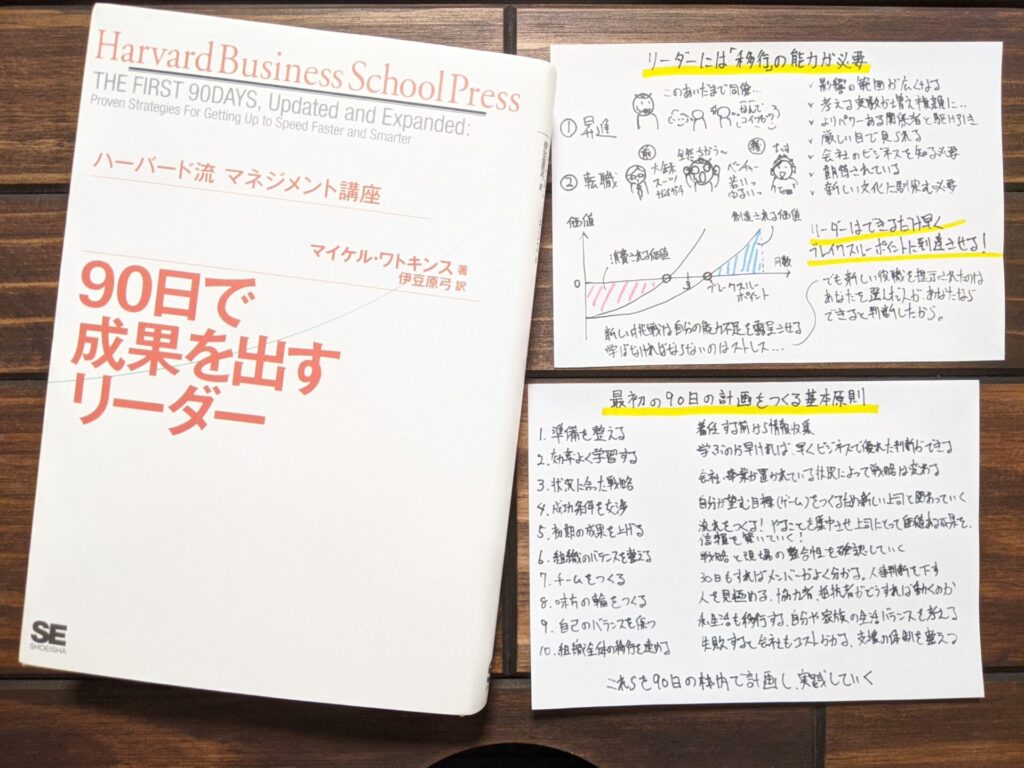 Harvard Business School Press
THE FIRST 90DAYS, Updated and Expanded:
Proven Strategies For Getting Up to Speed Faster and Smarter
ハーバード流 マネジメント講座
マイケル・ワトキンス 著
伊豆原弓 訳
90日で
成果を出す
リーダー
SE
SHOEISHA
リーダーには「移行」の能力が必要
このあいだまで同僚…
なんで
コイツが?
① 昇進
② 転職
前
大企業
スーツ
全然ちがう〜
ベンチャー
若いっ
ゆるいっ
後
✓ 影響の範囲が広くなる
✓ 考える変数が増え複雑に…
✓ よりパワーある関係者と駆け引き
✓ 厳しい目で見られる
✓ 会社のビジネスを知る必要
✓ 期待されている
✓ 新しい文化に馴染む必要
価値
創造される価値
消費される価値
0
月数
ブレークスルー
ポイント
リーダーはできるだけ早く
ブレイクスルーポイントに到達させる!
でも新しい役職を提示されたのは
あなたを選んだ人が、あなたなら
できると判断したから。
新しい挑戦は自分の能力不足を露呈させる
学ばなければならないのはストレス…
最初の90日の計画をつくる基本原則
1. 準備を整える 着任する前から情報収集
2. 効率よく学習する 学ぶのが早ければ、早くビジネスで優れた判断ができる
3. 状況に合った戦略 会社・事業が置かれている状況によって戦略は変わる
4. 成功条件を交渉 自分が望む目標(ゲーム)をつくるため新しい上司と関わっていく
5. 初期の成果を上げる 流れをつくる! やることを集中させ上司にとって価値ある成果を、
信頼を築いていく!
6. 組織のバランスを整える 戦略と現場の整合性を確認していく
7. チームをつくる 30日もすればメンバーがよく分かる。人事判断を下す
8. 味方の輪をつくる 人を見極める、協力者、抵抗者がどうすれば動くのか
9. 自己のバランスを保つ 私生活も移行する、自分や家族の生活バランスを考える
10. 組織全体の移行を速める 失敗すると会社もコストかかる、支援の体制を整える
これらを90日の枠内で計画し、実践していく